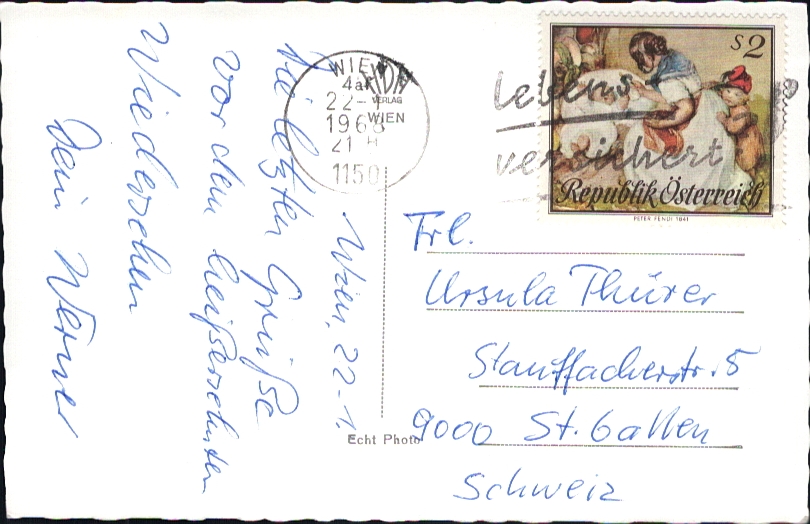 Wien, 22-1.
Die letzten Grüße
vor dem heißersehnten
Wiedersehen
Dein Werner
WIEN
4a
22-1
1968
21 H
1150
VERLAG
WIEN
lebens
versichert
S2
Republik Österreich
PETER FENDI 1841
Frl.
Ursula Thürer
Stauffacherstr. 5
9000 St. Gallen
Schweiz
Echt Photo